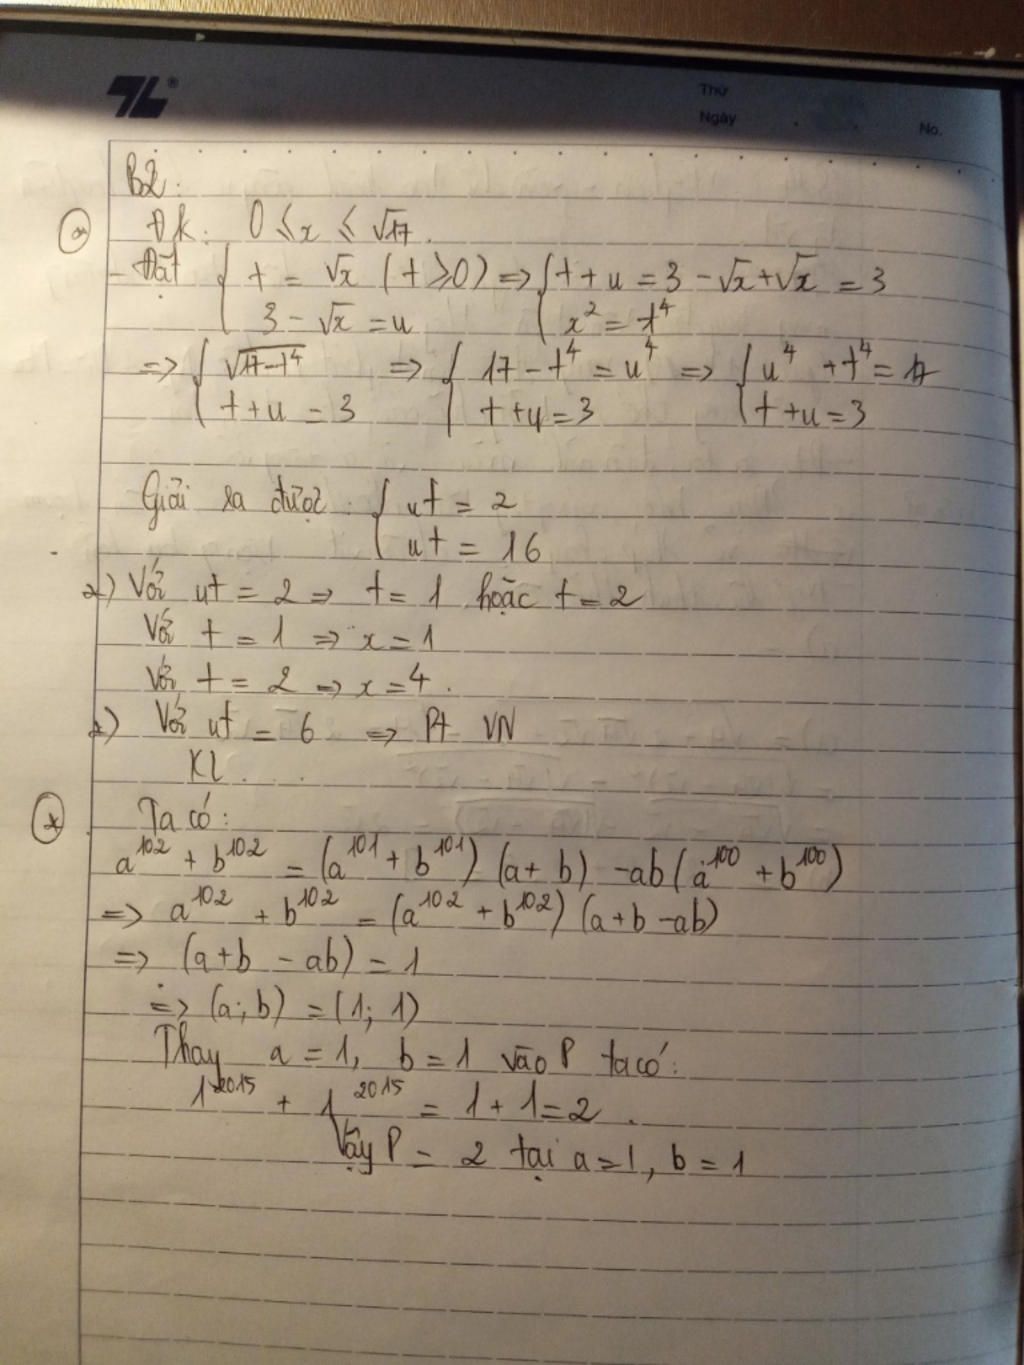 TL®
Thứ
Ngày
No.
B2:
* ĐK: 0 ≤ x ≤ √17.
- Đặt { t = √x (t ≥ 0) => { t + u = 3 - √x + √x = 3
3 - √x = u x² = t⁴
=> { √17-t⁴ => { 17 - t⁴ = u⁴ => { u⁴ + t⁴ = 17
t + u = 3 t + u = 3 t + u = 3
Giải ra được: { ut = 2
ut = 16
+) Với ut = 2 => t = 1 hoặc t = 2
Với t = 1 => x = 1
Với t = 2 => x = 4.
+) Với ut = 6 => Pt VN
KL . . .
* Ta có:
a¹⁰² + b¹⁰² = (a¹⁰¹ + b¹⁰¹) (a + b) - ab(a¹⁰⁰ + b¹⁰⁰)
=> a¹⁰² + b¹⁰² = (a¹⁰² + b¹⁰²) (a + b - ab)
=> (a + b - ab) = 1
=> (a; b) = (1; 1)
Thay a = 1, b = 1 vào P ta có:
1²⁰¹⁵ + 1²⁰¹⁵ = 1 + 1 = 2.
Vậy P = 2 tại a = 1, b = 1